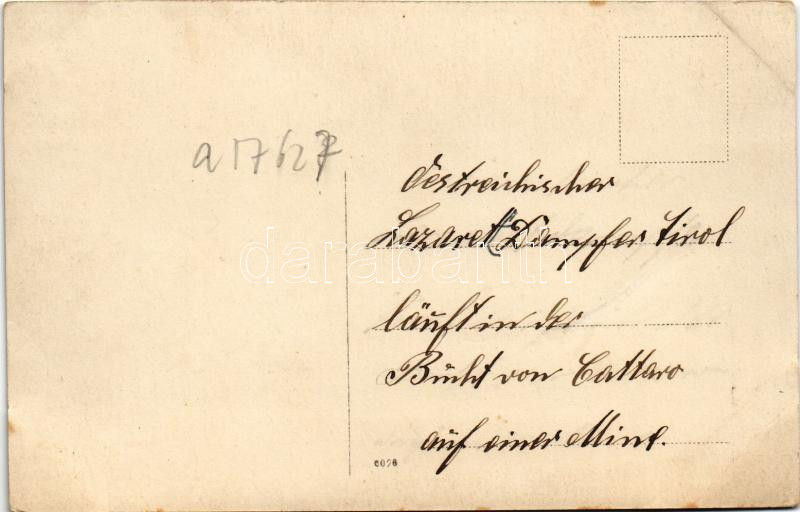 a 17627
Oestreichischer
Lazarett Dampfer Tirol
darabanth
läuft in der
Bucht von Cattaro
auf einer Mine.
6026